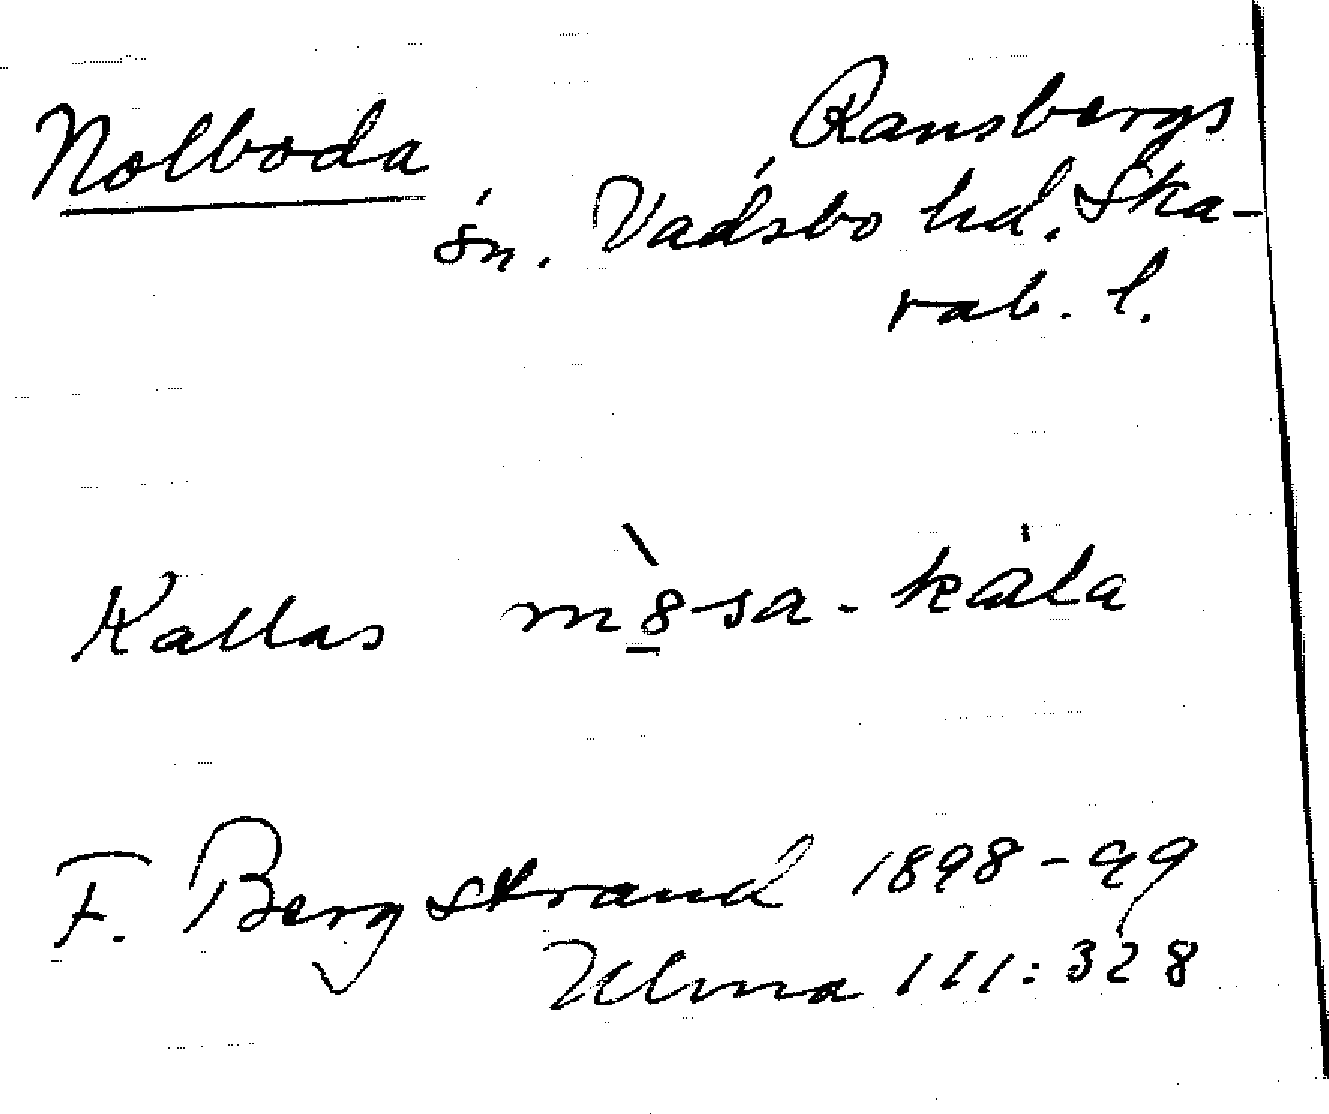 Nolboda Ransbergs
sn. Vadsbo hd. Ska-
rab. l.
Kallas
F. Bergstrand 1898-99
Ulma 111:328